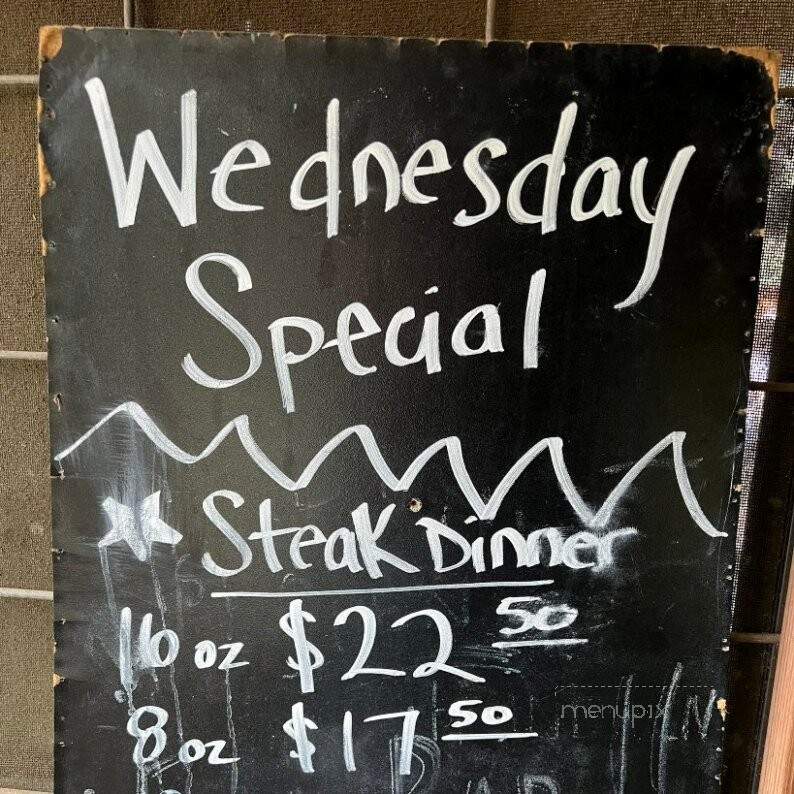 Wednesday
Special
Steak Dinner
16 oz $22 50
8 oz $17 50
menupix